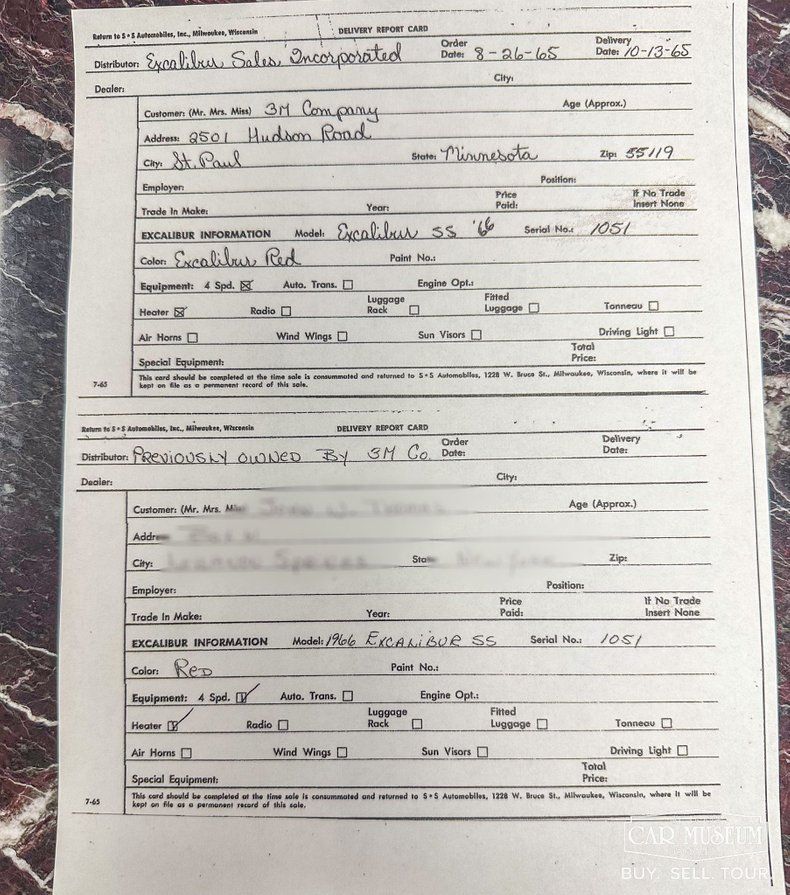 Return to S•S Automobiles, Inc., Milwaukee, Wisconsin DELIVERY REPORT CARD
Distributor: Excalibur Sales Incorporated Order Date: 8-26-65 Delivery Date: 10-13-65
Dealer: City:
Customer: (Mr. Mrs. Miss) 3M Company Age (Approx.)
Address: 2501 Hudson Road
City: St. Paul State: Minnesota Zip: 55119
Employer: Position:
Trade In Make: Year: Price Paid: If No Trade Insert None
EXCALIBUR INFORMATION Model: Excalibur SS '66 Serial No.: 1051
Color: Excalibur Red Paint No.:
Equipment: 4 Spd. ☒ Auto. Trans. ☐ Engine Opt.:
Heater ☒ Radio ☐ Luggage Rack ☐ Fitted Luggage ☐ Tonneau ☐
Air Horns ☐ Wind Wings ☐ Sun Visors ☐ Driving Light ☐
Special Equipment: Total Price:
This card should be completed at the time sale is consummated and returned to S•S Automobiles, 1228 W. Bruce St., Milwaukee, Wisconsin, where it will be
7-65 kept on file as a permanent record of this sale.
Return to S•S Automobiles, Inc., Milwaukee, Wisconsin DELIVERY REPORT CARD
Distributor: PREVIOUSLY OWNED BY 3M Co. Order Date: Delivery Date:
Dealer: City:
Customer: (Mr. Mrs. Age (Approx.)
City: Zip:
Employer: Position:
Trade In Make: Year: Price Paid: If No Trade Insert None
EXCALIBUR INFORMATION Model: 1966 EXCALIBUR SS Serial No.: 1051
Color: RED Paint No.:
Equipment: 4 Spd. ☑ Auto. Trans. ☐ Engine Opt.:
Heater ☑ Radio ☐ Luggage Rack ☐ Fitted Luggage ☐ Tonneau ☐
Air Horns ☐ Wind Wings ☐ Sun Visors ☐ Driving Light ☐
Special Equipment: Total Price:
This card should be completed at the time sale is consummated and returned to S•S Automobiles, 1228 W. Bruce St., Milwaukee, Wisconsin, where it will be
7-65 kept on file as a permanent record of this sale.
CAR MUSEUM
BUY. SELL. TOUR.